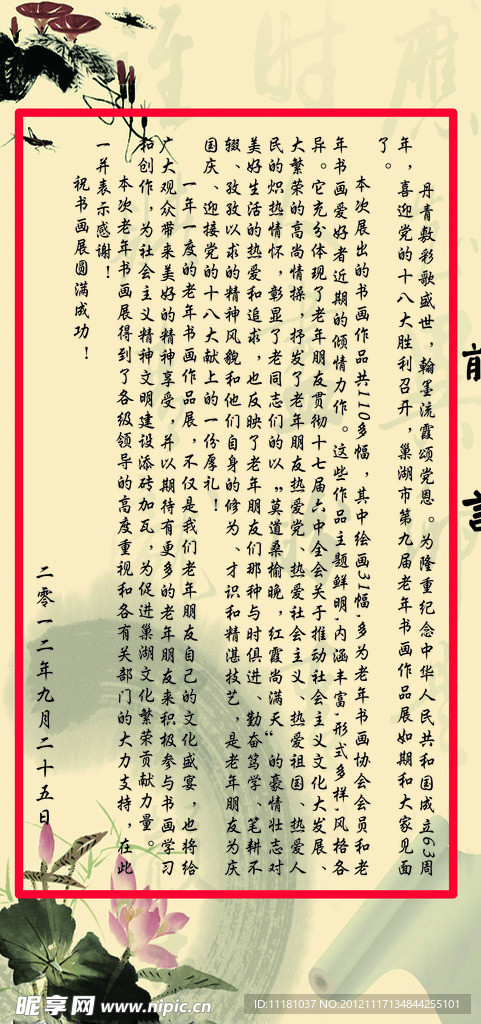 前言
丹青敷彩歌盛世，翰墨流霞颂党恩。为隆重纪念中华人民共和国成立63周
年，喜迎党的十八大胜利召开，巢湖市第九届老年书画作品展如期和大家见面
了。
本次展出的书画作品共110多幅，其中绘画31幅,多为老年书画协会会员和老
年书画爱好者近期的倾情力作。这些作品主题鲜明,内涵丰富,形式多样,风格各
异。它充分体现了老年朋友贯彻十七届六中全会关于推动社会主义文化大发展、
大繁荣的高尚情操，抒发了老年朋友热爱党、热爱社会主义、热爱祖国、热爱人
民的炽热情怀，彰显了老同志们的以“莫道桑榆晚，红霞尚满天“的豪情壮志对
美好生活的热爱和追求，也反映了老年朋友们那种与时俱进、勤奋笃学、笔耕不
辍、孜孜以求的精神风貌和他们自身的修为、才识和精湛技艺，是老年朋友为庆
国庆、迎接党的十八大献上的一份厚礼！
一年一度的老年书画作品展，不仅是我们老年朋友自己的文化盛宴，也将给
广大观众带来美好的精神享受，并以期待有更多的老年朋友来积极参与书画学习
和创作，为社会主义精神文明建设添砖加瓦，为促进巢湖文化繁荣贡献力量。
本次老年书画展得到了各级领导的高度重视和各有关部门的大力支持，在此
一并表示感谢！
祝书画展圆满成功！
二零一二年九月二十五日
昵享网 www.nipic.cn
ID:11181037 NO:20121117134844255101